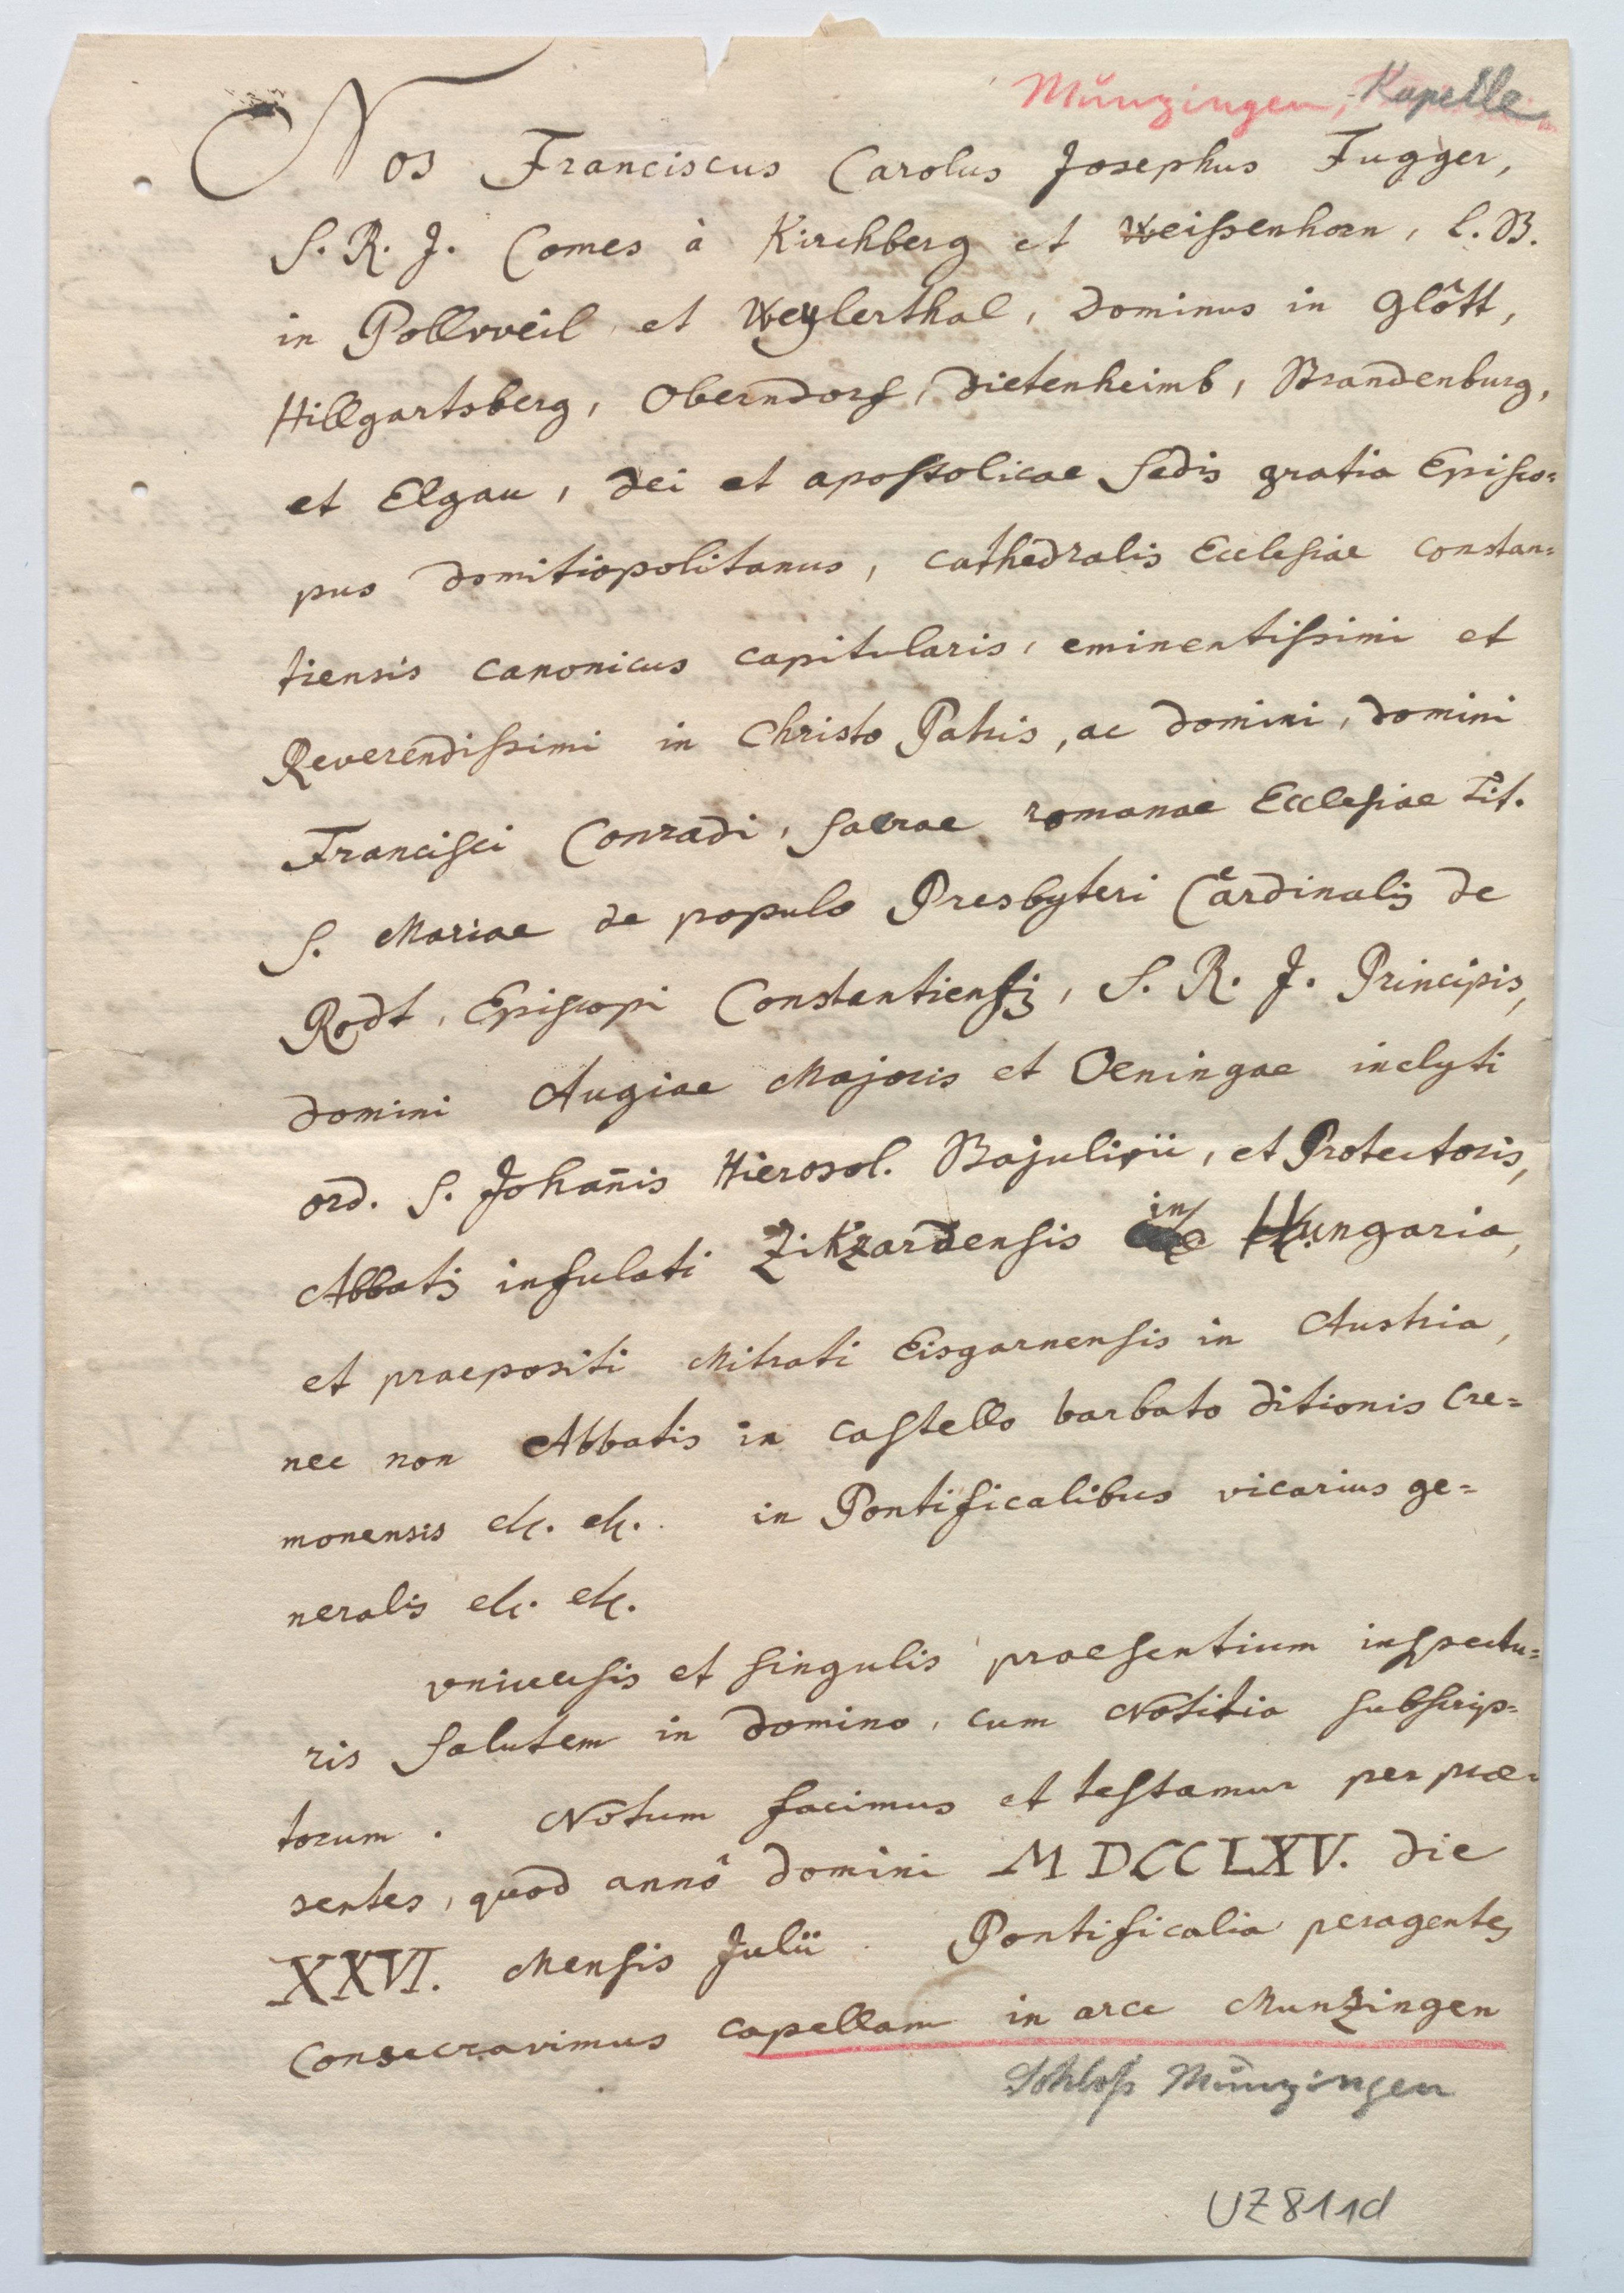 Münzingen, Kapelle
Nos Franciscus Carolus Josephus Fugger,
S. R. J. Comes à Kirchberg et Weissenhorn, L. B.
in Pollweil et Weylerthal, Dominus in Glött,
Hillgartsberg, Oberndorf, Dietenheimb, Brandenburg,
et Elgau, Dei et apostolicae Sedis gratia Episco=
pus Domitiopolitanus, Cathedralis Ecclesiae Constan=
tiensis canonicus capitularis, eminentissimi et
Reverendissimi in Christo Patris, ac Domini, Domini
Francisci Conradi, Sacrae romanae Ecclesiae Tit.
S. Mariae de populo Presbyteri Cardinalis de
Rodt, Episcopi Constantiensis, S. R. J. Principis,
Domini Augiae Majoris et Oeningae inclyti
ord. S. Johan̄is Hierosol. Bajulivii, et Protectoris,
Abbatis infulati Zikzardensis in Hungaria,
et praepositi Mitrati Eisgarnensis in Austria,
nec non Abbatis in castello barbato ditionis Cre=
monensis etc. etc. in Pontificalibus vicarius ge=
neralis etc. etc.
universis et singulis praesentium inspectu=
ris Salutem in Domino, cum Notitia subscrip=
torum. Notum facimus et testamur per prae=
sentes, quod annô Domini MDCCLXV. Die
XXVI. Mensis Julii Pontificalia peragentes
Consecravimus capellam in arce Munzingen
Schloß Münzingen
UZ811d